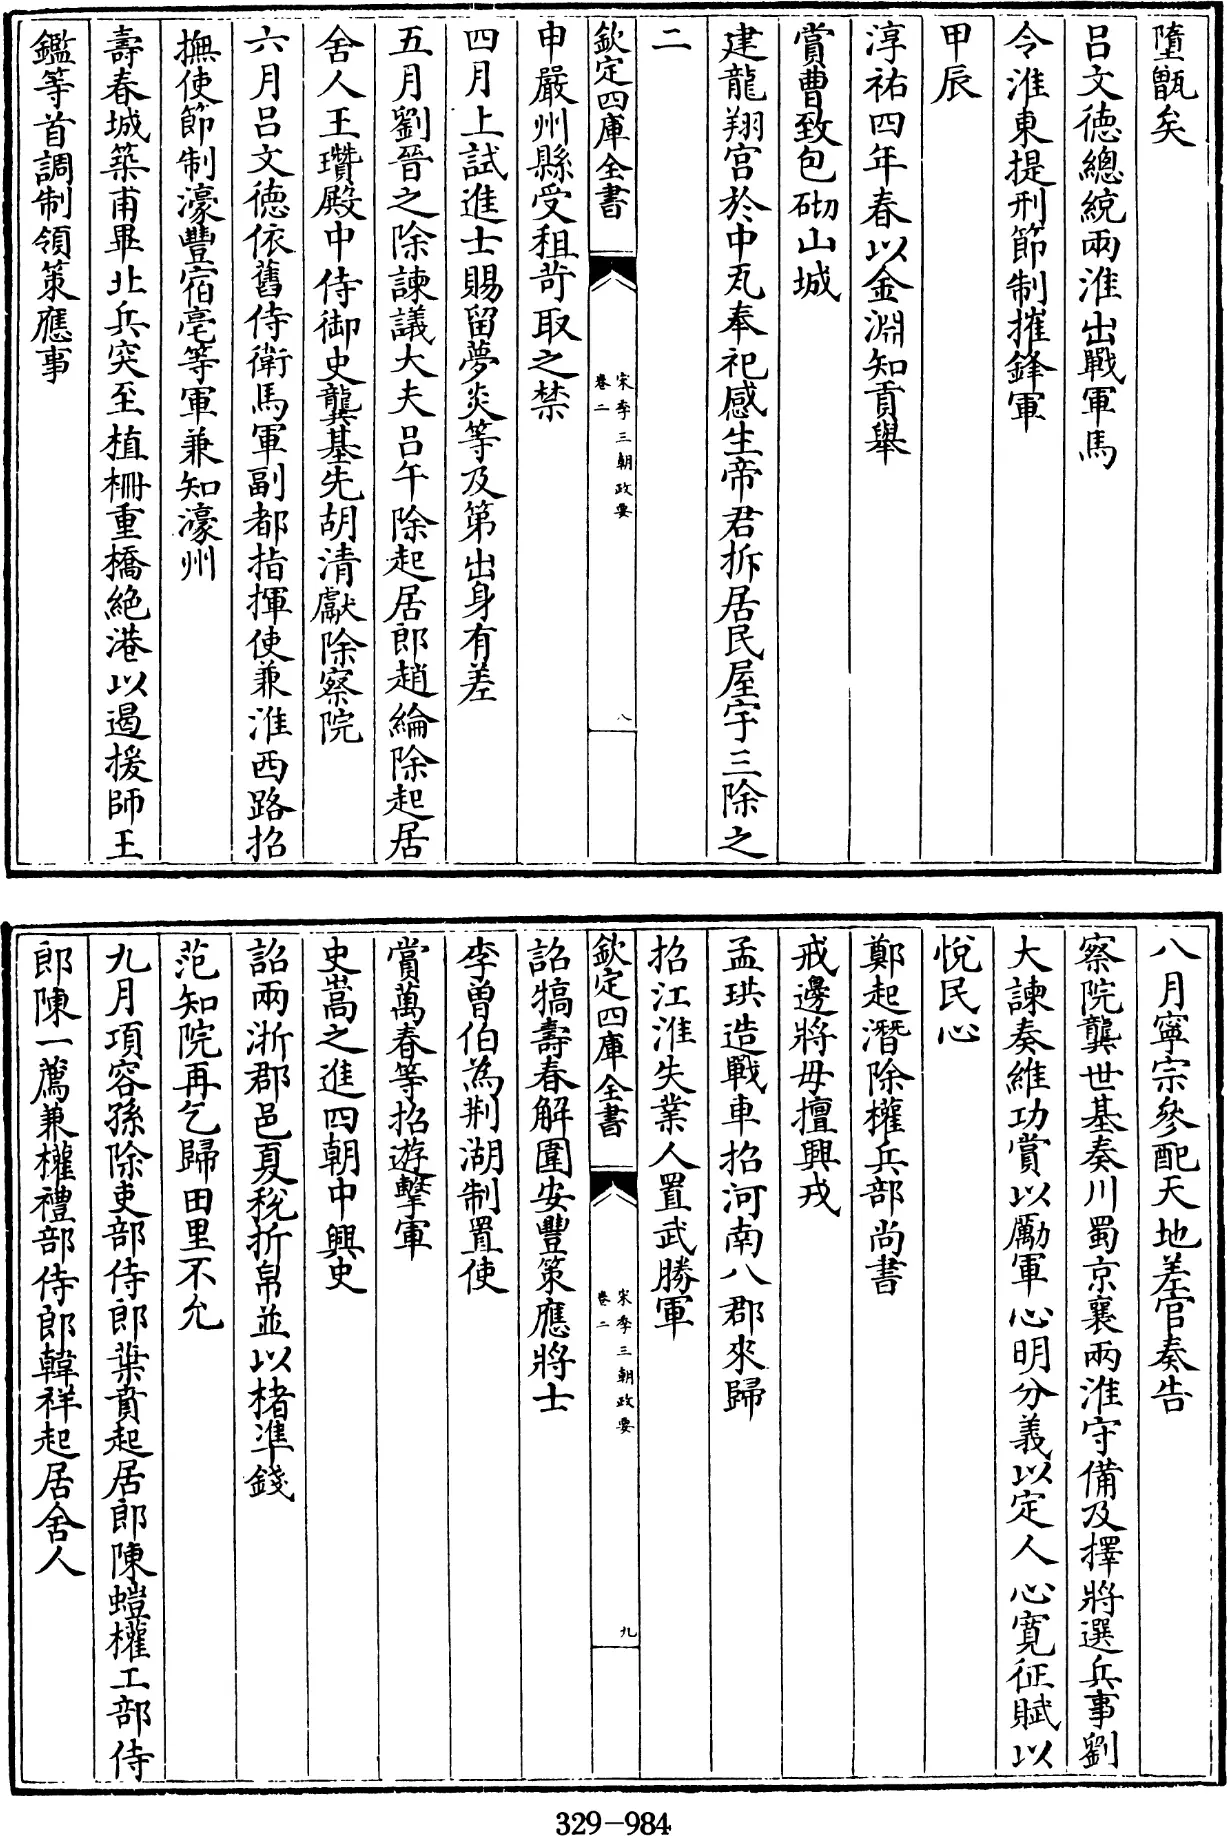 墮甑矣
呂文徳總統兩淮出戰軍馬
令淮東提刑節制摧鋒軍
甲辰
淳祐四年春以金淵知貢舉
賞曹致包砌山城
建龍翔宫於中瓦奉祀感生帝君拆居民屋宇三除之
二
欽定四庫全書
宋季三朝政要
卷二
八
申嚴州縣受租苛取之禁
四月上試進士賜留夢炎等及第出身有差
五月劉晉之除諫議大夫呂午除起居郎趙綸除起居
舍人王瓚殿中侍御史龔基先胡清獻除察院
六月呂文徳依舊侍衛馬軍副都指揮使兼淮西路招
撫使節制濠豐宿亳等軍兼知濠州
壽春城築甫畢北兵突至植柵重橋絶港以遏援師王
鑑等首調制領策應事
八月寧宗參配天地差官奏告
察院龔世基奏川蜀京襄兩淮守備及擇將選兵事劉
大諫奏維功賞以勵軍心明分義以定人心寛征賦以
悅民心
鄭起潛除權兵部尚書
戒邊將毋擅興戎
孟珙造戰車招河南八郡來歸
招江淮失業人置武勝軍
欽定四庫全書
宋季三朝政要
卷二
九
詔犒壽春解圍安豐策應將士
李曽伯為荆湖制置使
賞萬春等招遊擊軍
史嵩之進四朝中興史
詔兩浙郡邑夏稅折帛並以楮準錢
范知院再乞歸田里不允
九月項容孫除吏部侍郎葉賁起居郎陳螘權工部侍
郎陳一薦兼權禮部侍郎韓祥起居舍人
329-984